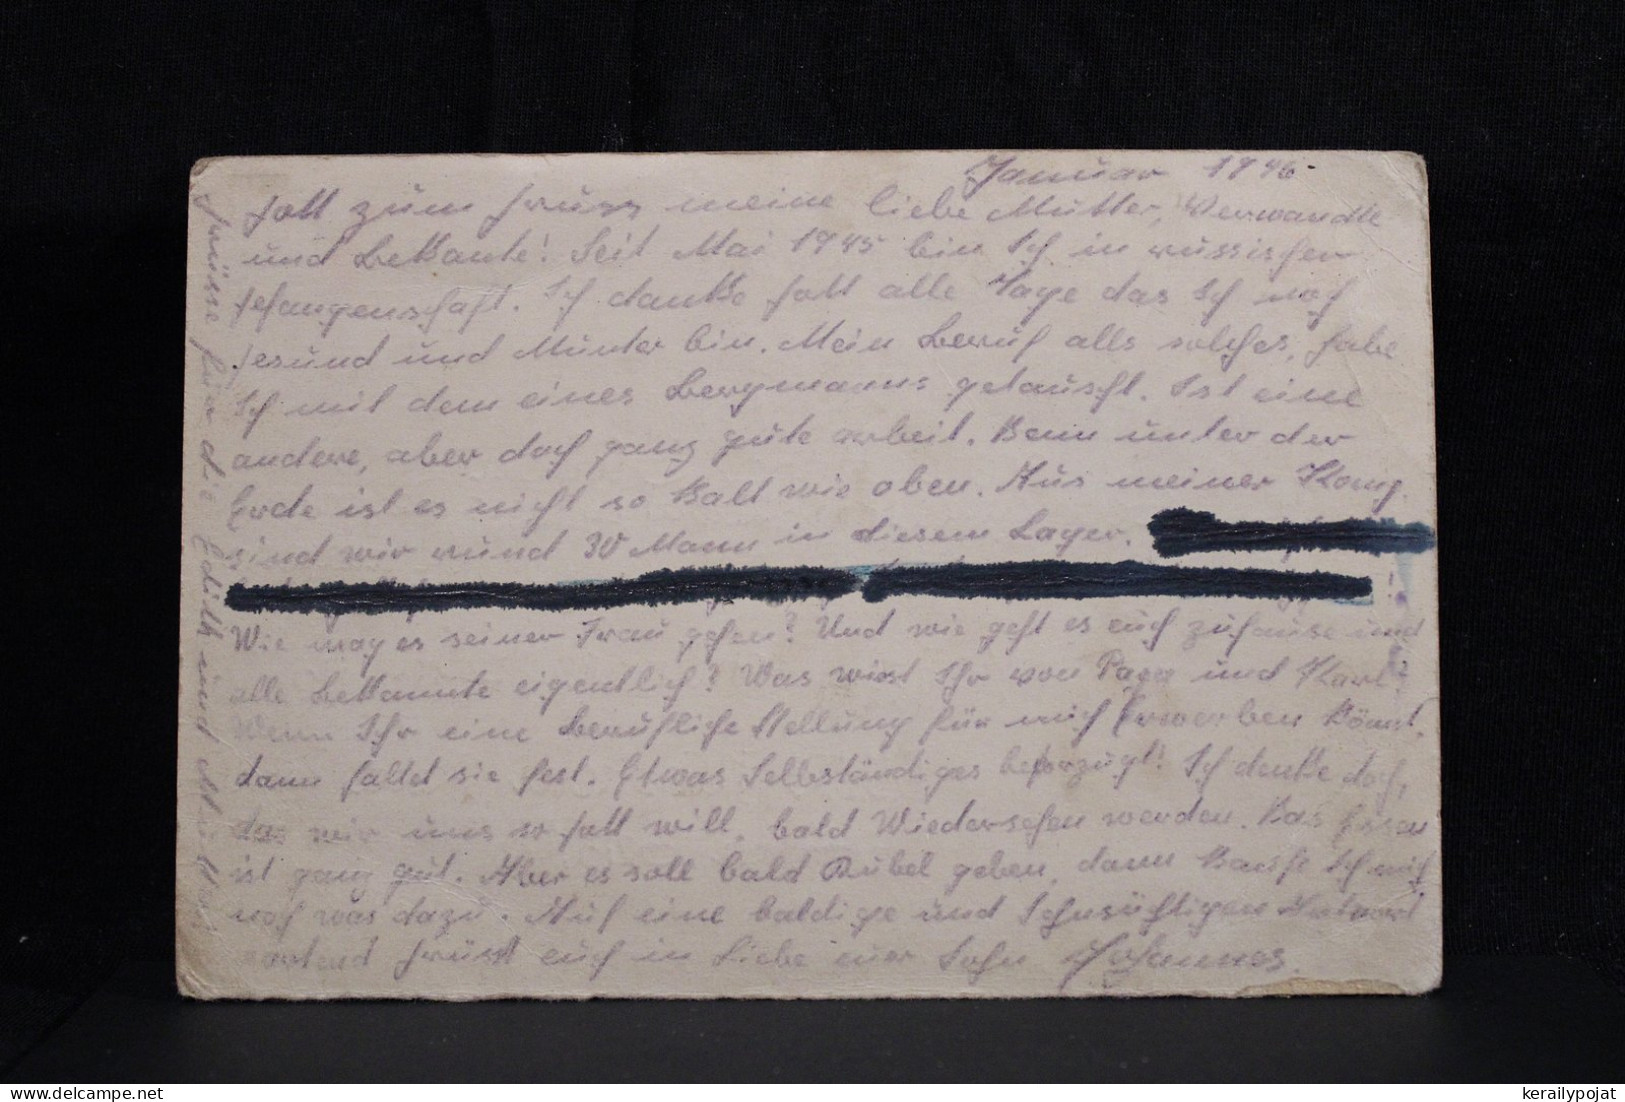 Januar 1946.
Gott zum Gruss meine liebe Mutter, Verwandte
und Bekante! Seit Mai 1945 bin Ich in russischer
Gefangenschaft. Ich danke Gott alle Tage das Ich noch
Gesund und Munter bin. Mein Beruf alls solches, habe
Ich mit dem eines Bergmanns getauscht. Ist eine
andere, aber doch ganz gute arbeit. Denn unter der
Erde ist es nicht so kalt wie oben. Aus meiner Komp.
sind wir rund 30 Mann in diesem Lager.
!
Wie mag es seiner Frau gehen? Und wie geht es euch zuhause und
alle bekannte eigentlich? Was wisst Ihr von Papa und Karl?
Wenn Ihr eine berufliche Stellung für mich Erwerben könnt,
dann haltet sie fest. Etwas Selbständiges bevorzugt! Ich denke doch,
das wir uns so Gott will, bald Wiedersehen werden. Das Essen
ist ganz gut. Aber es soll bald Rubel geben, dann kaufe Ich mir
noch was dazu. Auf eine baldige und Sehnsüchtigen Antwort
wartend Grüsst euch in Liebe euer Sohn Johannes.
Grüsse für die Edith und
kerailypojat © delcampe.net